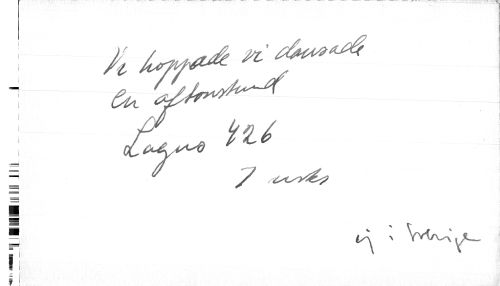 Vi hoppade vi dansade
en aftonstund
Lagus 426
7 uvks
ej i Sverige